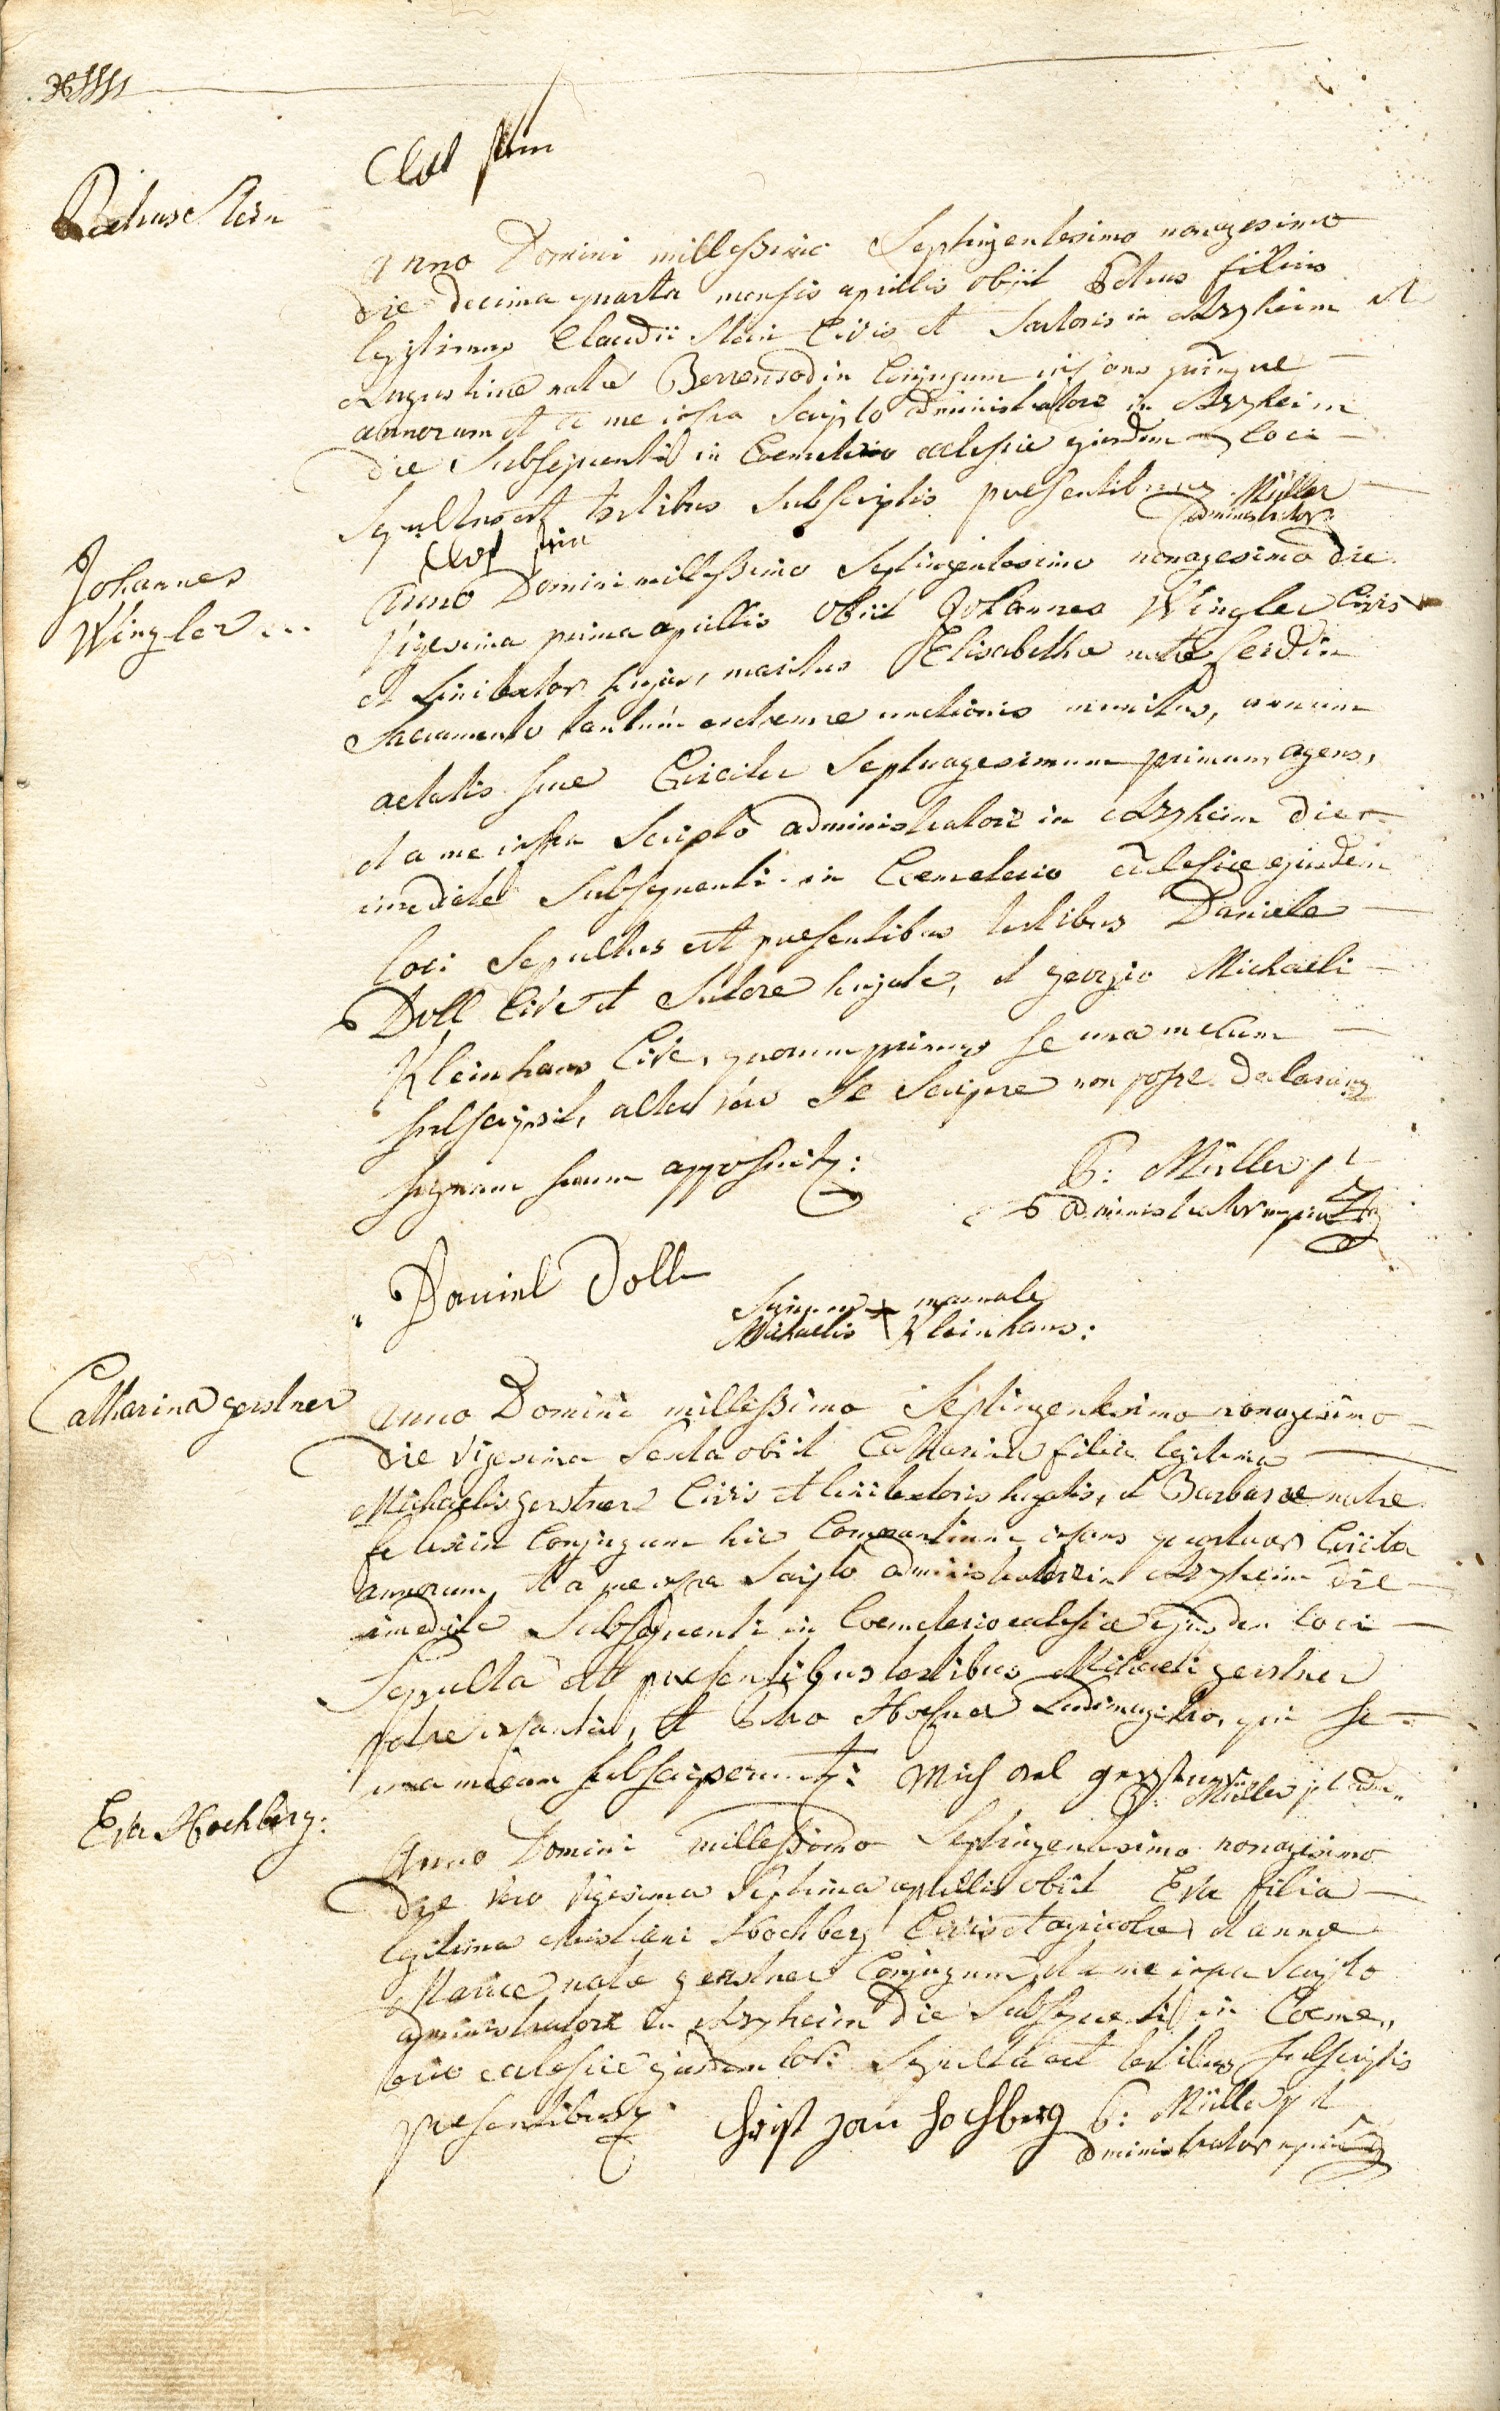 Petrus Stein
Anno Domini millessimo Septingentesimo nonagesimo
die decima quarta mensis aprillis obiit Petrus filius
legitimus Claudii Stein Civis et Sartoris in Arzheim et
Augustinae natae Conjugum infans quinque
annorum et a me infra Scripto administratore in Arzheim
die Subsequenti in Coemeterio ecclesiae ejusdem loci
Sepultus est testibus Subscriptis praesentibus Müller
administrator
Johannes
Wingler
Anno Domini millessimo Septingentesimo nonagesimo die
Vigesima prima aprillis obiit Johannes Wingler Civis
et Linitextor hujas, maritus Elisabethae natae
Sacramento tantum extremae unctionis munitus, annum
aetatis suae Circiter Septuagesimum primum agens,
et a me infra Scripto administratore in Arzheim die
imediate Subsequenti in Coemeterio ecclesiae ejusdem
loci Sepultus est praesentibus testibus Daniele
Doll Cive et Sutore hujate, et georgio Michaeli
Kleinhans Cive, quorum primus se una mecum
subscripsit, alter vero se Scripere non posse declarans
signum suum apposuit:
P: Müller pt
administrator mpria
Daniel Doll
Signum + manuale
Michaelis Kleinhans:
Catharina gerstner
Anno Domini millessimo Septingentesimo nonagesimo
die Vigesima Sexta obiit Catharina filia legitima
Michaelis gerstner Civis et linitextoris hujatis, et Barbarae natae
Conjugum hic infans quatuor Circiter
annorum, et a me infra Scripto administratore in Arzheim die
imediate Subsequenti in Coemeterio eclesiae ejusdem loci
Sepulta est praesentibus testibus Michaeli gerstner
patre infantis, et Petro Hoefner Ludimagistro, qui se
una mecum subscripserunt: Michael gerstner
P: Müller pt adm
Eva Hochberg:
Anno Domini millessimo Septingentesimo nonagesimo
die vero Vigesima Septima aprillis obiit Eva filia
legitima Christiani Hochberg Civis et agricolae, et annae
Mariae natae gerstner Conjugum, et a me infra Scripto
administratore in Arzheim die Subsequenti in Coeme,,
terio eclesiae ejusdem loci Sepulta est testibus subscriptis
praesentibus
Christian Hochberg P: Müller pt
administrator mpria